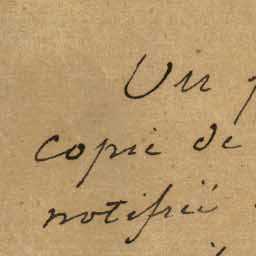 Un
copie de
notifié